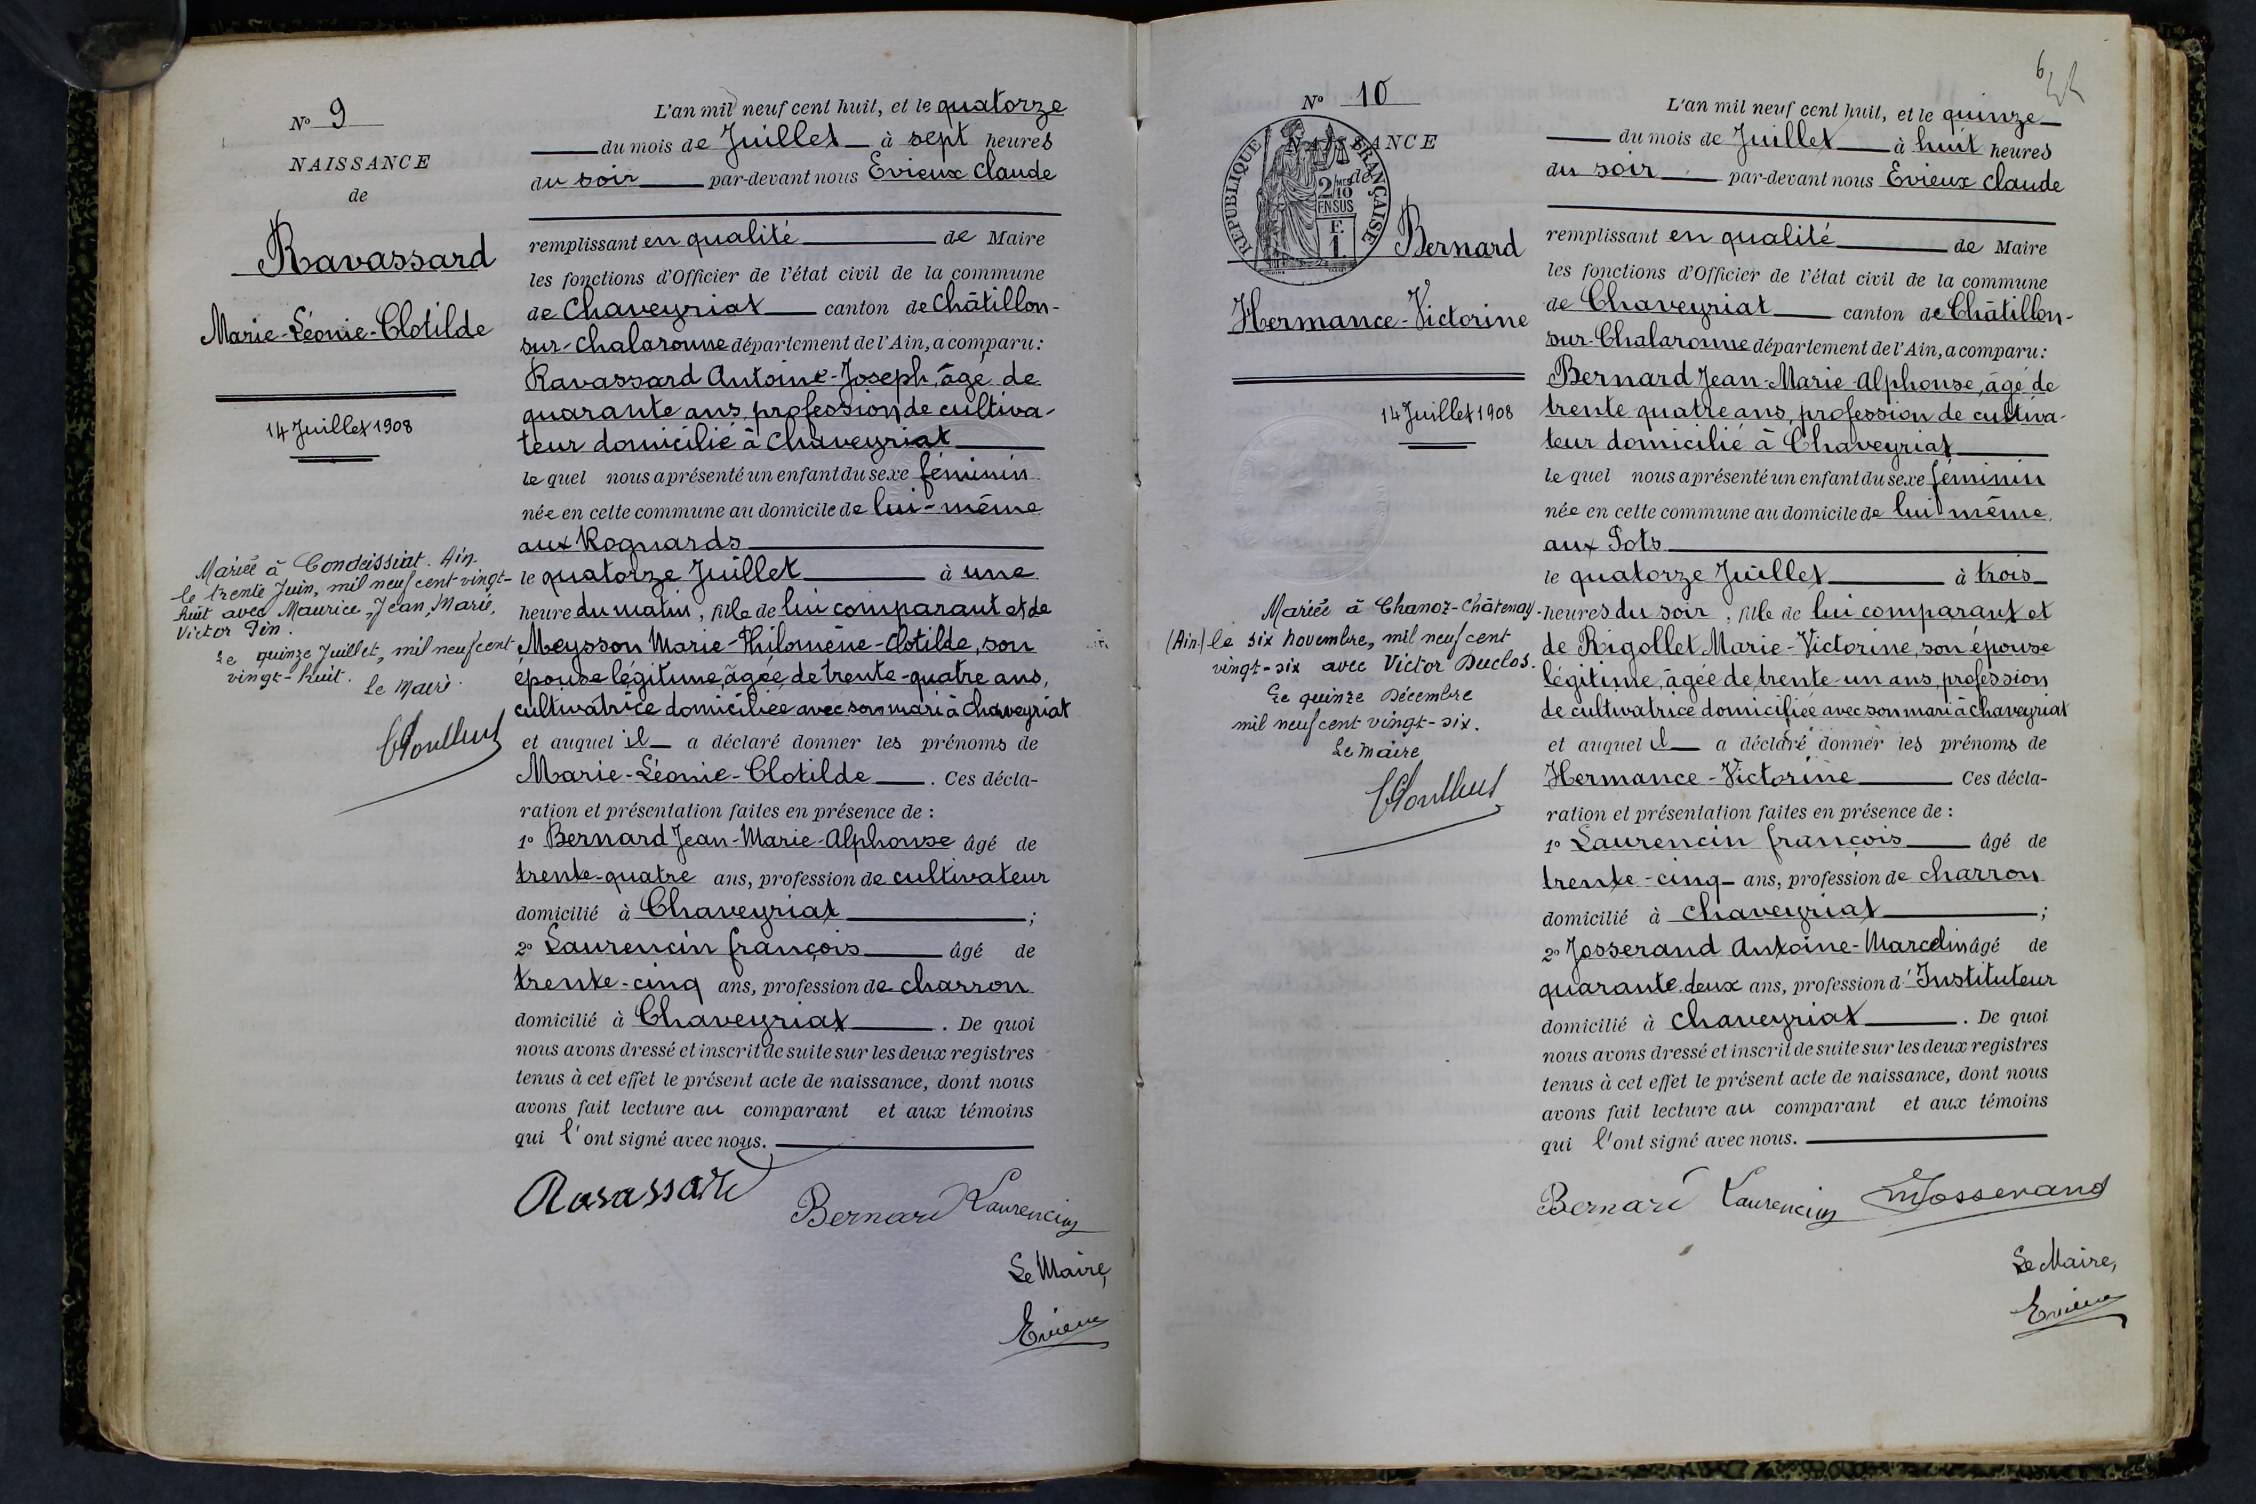 N° 9
NAISSANCE
de
Ravassard
Marie-Léonie-Clotilde
14 Juillet 1908
Mariée à Condeissiat. Ain.
le trente Juin, mil neuf cent-vingt-
huit avec Maurice, Jean, Marie,
Victor Pin.
Le quinze Juillet, mil neuf cent
vingt-huit.
Le Maire
L'an mil neuf cent huit, et le quatorze
du mois de Juillet à sept heures
du soir par-devant nous Evieux Claude
remplissant en qualité de Maire
les fonctions d'Officier de l'état civil de la commune
de Chaveyriat canton de Châtillon-
sur-Chalaronne département de l'Ain, a comparu :
Ravassard Antoine-Joseph, âgé de
quarante ans, profession de cultiva-
teur domicilié à Chaveyriat
le quel nous a présenté un enfant du sexe féminin
née en cette commune au domicile de lui-même
aux Rognards
le quatorze Juillet à une
heure du matin, fille de lui comparant et de
Meysson Marie-Philomène-Clotilde, son
épouse légitime, âgée de trente-quatre ans,
cultivatrice domiciliée avec son mari à Chaveyriat
et auquel il a déclaré donner les prénoms de
Marie-Léonie-Clotilde. Ces décla-
ration et présentation faites en présence de :
1° Bernard Jean-Marie-Alphonse âgé de
trente-quatre ans, profession de cultivateur
domicilié à Chaveyriat ;
2° Laurencin françois âgé de
trente-cinq ans, profession de charron
domicilié à Chaveyriat. De quoi
nous avons dressé et inscrit de suite sur les deux registres
tenus à cet effet le présent acte de naissance, dont nous
avons fait lecture au comparant et aux témoins
qui l'ont signé avec nous.
Ravassard Bernard Laurencin
Le Maire,
Evieux
6
N° 10
NAISSANCE
de
RÉPUBLIQUE FRANÇAISE
2/10 EN SUS
F. 1.
Bernard
Hermance-Victorine
14 Juillet 1908
Mariée à Chanoz-Châtenay
(Ain) le six novembre, mil neuf cent
vingt-six avec Victor Duclos.
Le quinze Décembre
mil neuf cent vingt-six.
Le Maire
L'an mil neuf cent huit, et le quinze
du mois de Juillet à huit heures
du soir par-devant nous Evieux Claude
remplissant en qualité de Maire
les fonctions d'Officier de l'état civil de la commune
de Chaveyriat canton de Châtillon-
sur-Chalaronne département de l'Ain, a comparu :
Bernard Jean-Marie-Alphonse, âgé de
trente quatre ans, profession de cultiva-
teur domicilié à Chaveyriat
le quel nous a présenté un enfant du sexe féminin
née en cette commune au domicile de lui même
aux Pots
le quatorze Juillet à trois
heures du soir, fille de lui comparant et
de Rigollet Marie-Victorine, son épouse
légitime, âgée de trente-un ans, profession
de cultivatrice domiciliée avec son mari à Chaveyriat
et auquel il a déclaré donner les prénoms de
Hermance-Victorine Ces décla-
ration et présentation faites en présence de :
1° Laurencin françois âgé de
trente-cinq ans, profession de charron
domicilié à Chaveyriat ;
2° Josserand Antoine-Marcelin âgé de
quarante deux ans, profession d'Instituteur
domicilié à Chaveyriat. De quoi
nous avons dressé et inscrit de suite sur les deux registres
tenus à cet effet le présent acte de naissance, dont nous
avons fait lecture au comparant et aux témoins
qui l'ont signé avec nous.
Bernard Laurencin Josserand
Le Maire,
Evieux